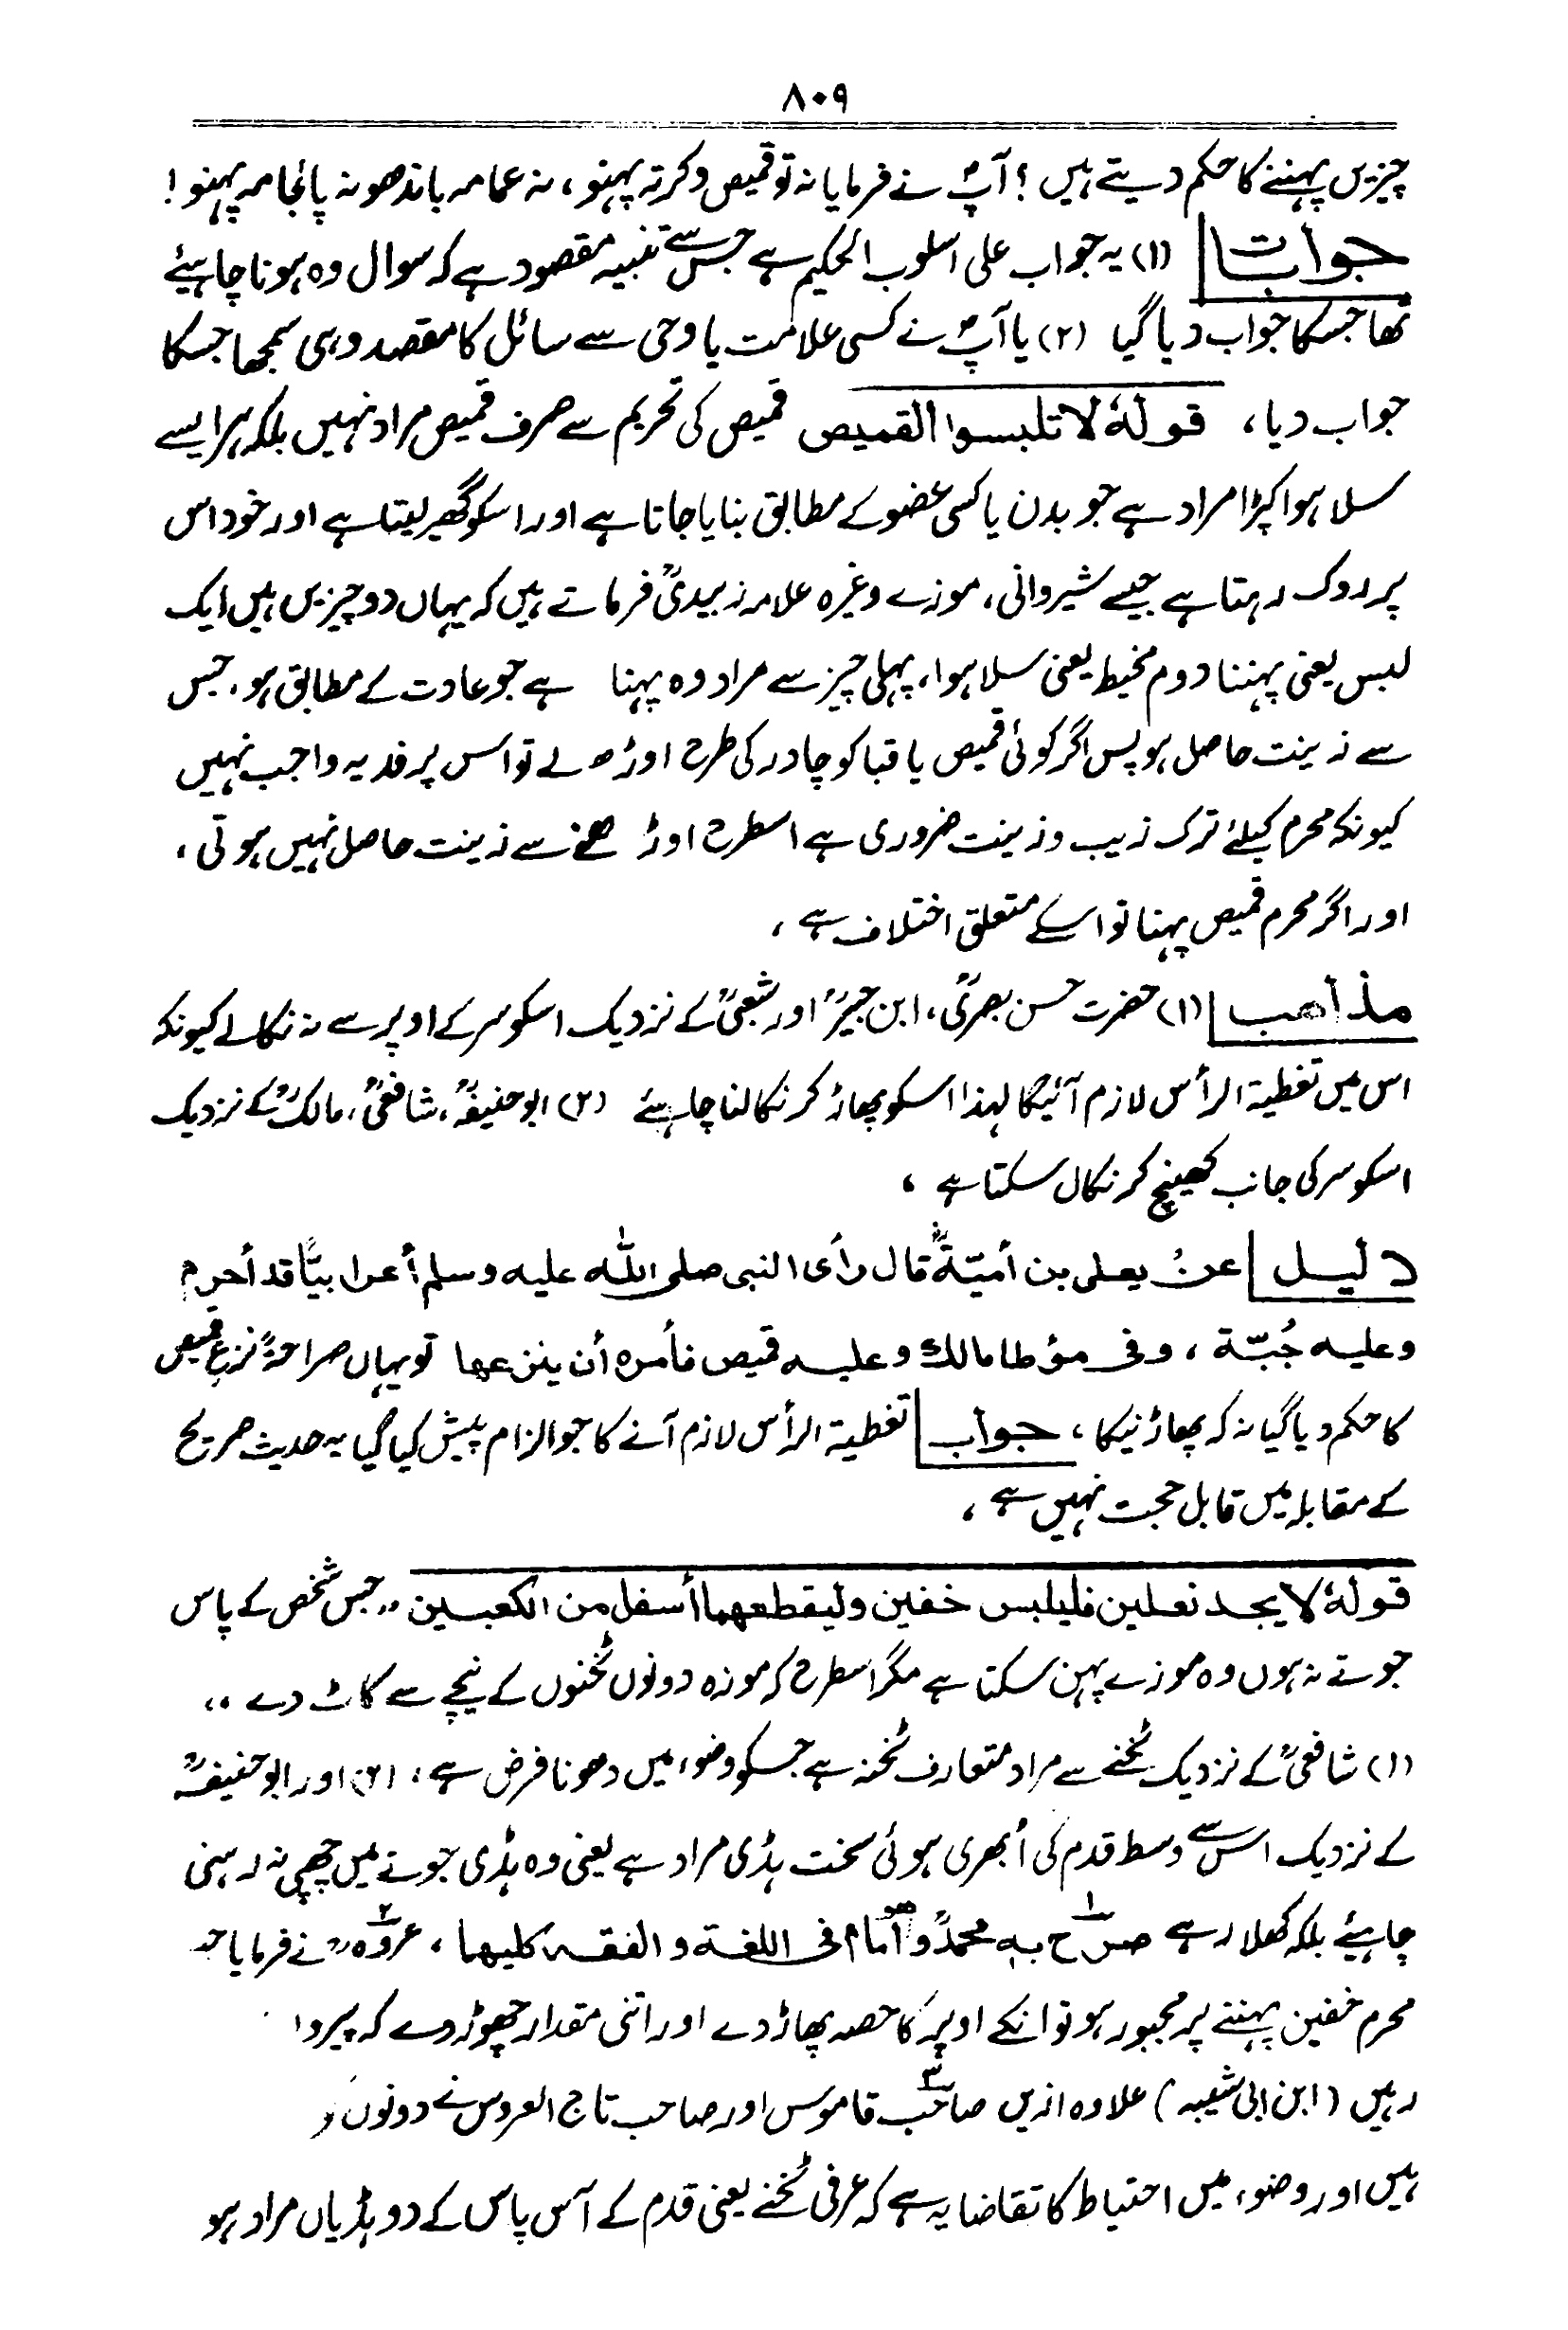 ۸۰۹
چیزیں پہننے کا حکم دیتے ہیں ؟ آپؐ نے فرمایا نہ تو قمیص و کرتہ پہنو ، نہ عمامہ باندھو نہ پائجامہ پہنو !
جوابات (۱) یہ جواب علی اسلوب الحکیم ہے جس سے تنبیہ مقصود ہے کہ سوال وہ ہونا چاہیئے
تھا جسکا جواب دیا گیا (۲) یا آپؐ نے کسی علامت یا وحی سے سائل کا مقصد وہی سمجھا جسکا
جواب دیا ، قولہٗ لا تلبسوا القمیص قمیص کی تحریم سے صرف قمیص مراد نہیں بلکہ ہر ایسے
سلا ہوا کپڑا مراد ہے جو بدن یا کسی عضو کے مطابق بنایا جاتا ہے اور اسکو گھیر لیتا ہے اور خود اس
پر روک رہتا ہے جیسے شیروانی ، موزے وغیرہ علامہ زبیدیؒ فرماتے ہیں کہ یہاں دو چیزیں ہیں ایک
لبس یعنی پہننا دوم مخیط یعنی سلا ہوا ، پہلی چیز سے مراد وہ پہنا ہے جو عادت کے مطابق ہو ، جس
سے زینت حاصل ہو پس اگر کوئی قمیص یا قبا کو چادر کی طرح اوڑھ لے تو اس پر فدیہ واجب نہیں
کیونکہ محرم کیلئے ترک زیب و زینت ضروری ہے اسطرح اوڑھنے سے زینت حاصل نہیں ہوتی ،
اور اگر محرم قمیص پہنا تو اسکے متعلق اختلاف ہے ،
مذاھب (۱) حضرت حسن بصریؒ ، ابن جبیرؒ اور شعبیؒ کے نزدیک اسکو سر کے اوپر سے نہ نکالے کیونکہ
اس میں تغطیۃ الرأس لازم آئیگا لہذا اسکو پھاڑ کر نکالنا چاہئے (۲) ابوحنیفہؒ ، شافعیؒ ، مالکؒ کے نزدیک
اسکو سر کی جانب کھینچ کر نکال سکتا ہے ،
دلیل عن یعلی بن أمیّۃؓ قال رأی النبی صلی اللہ علیہ وسلم أعرابیًّا قد أحرم
وعلیہ جُبّۃ ، وفی مؤطا مالک وعلیہ قمیص فأمرہ أن ینزعھا تو یہاں صراحۃً نزع قمیص
کا حکم دیا گیا نہ کہ پھاڑنیکا ، جواب تغطیۃ الرأس لازم آنے کا جو الزام پیش کیا گیا یہ حدیث صریح
کے مقابلہ میں قابل حجت نہیں ہے ،
قولہٗ لا یجد نعلین فلیلبس خفین ولیقطعھما أسفل من الکعبین ،، جس شخص کے پاس
جوتے نہ ہوں وہ موزے پہن سکتا ہے مگر اسطرح کہ موزہ دونوں ٹخنوں کے نیچے سے کاٹ دے ،،
(۱) شافعیؒ کے نزدیک ٹخنے سے مراد متعارف ٹخنہ ہے جسکو وضوء میں دھونا فرض ہے ، (۲) اور ابوحنیفہؒ
کے نزدیک اس سے وسط قدم کی اُبھری ہوئی سخت ہڈی مراد ہے یعنی وہ ہڈی جوتے میں چھپی نہ رہنی
چاہیئے بلکہ کھلا رہے صرّح بہ محمدؒ وھو امام فی اللغۃ و الفقہ کلیھما ، عروہؒ نے فرمایا
محرم خفین پہننے پر مجبور ہو تو انکے اوپر کا حصہ پھاڑ دے اور اتنی مقدار چھوڑ دے کہ پیر
رہیں (ابن ابی شیبہ) علاوہ ازیں صاحب قاموس اور صاحب تاج العروس نے دونوں
ہیں اور وضوء میں احتیاط کا تقاضا یہ ہے کہ عرفی ٹخنے یعنی قدم کے آس پاس کے دو ہڈیاں مراد ہو